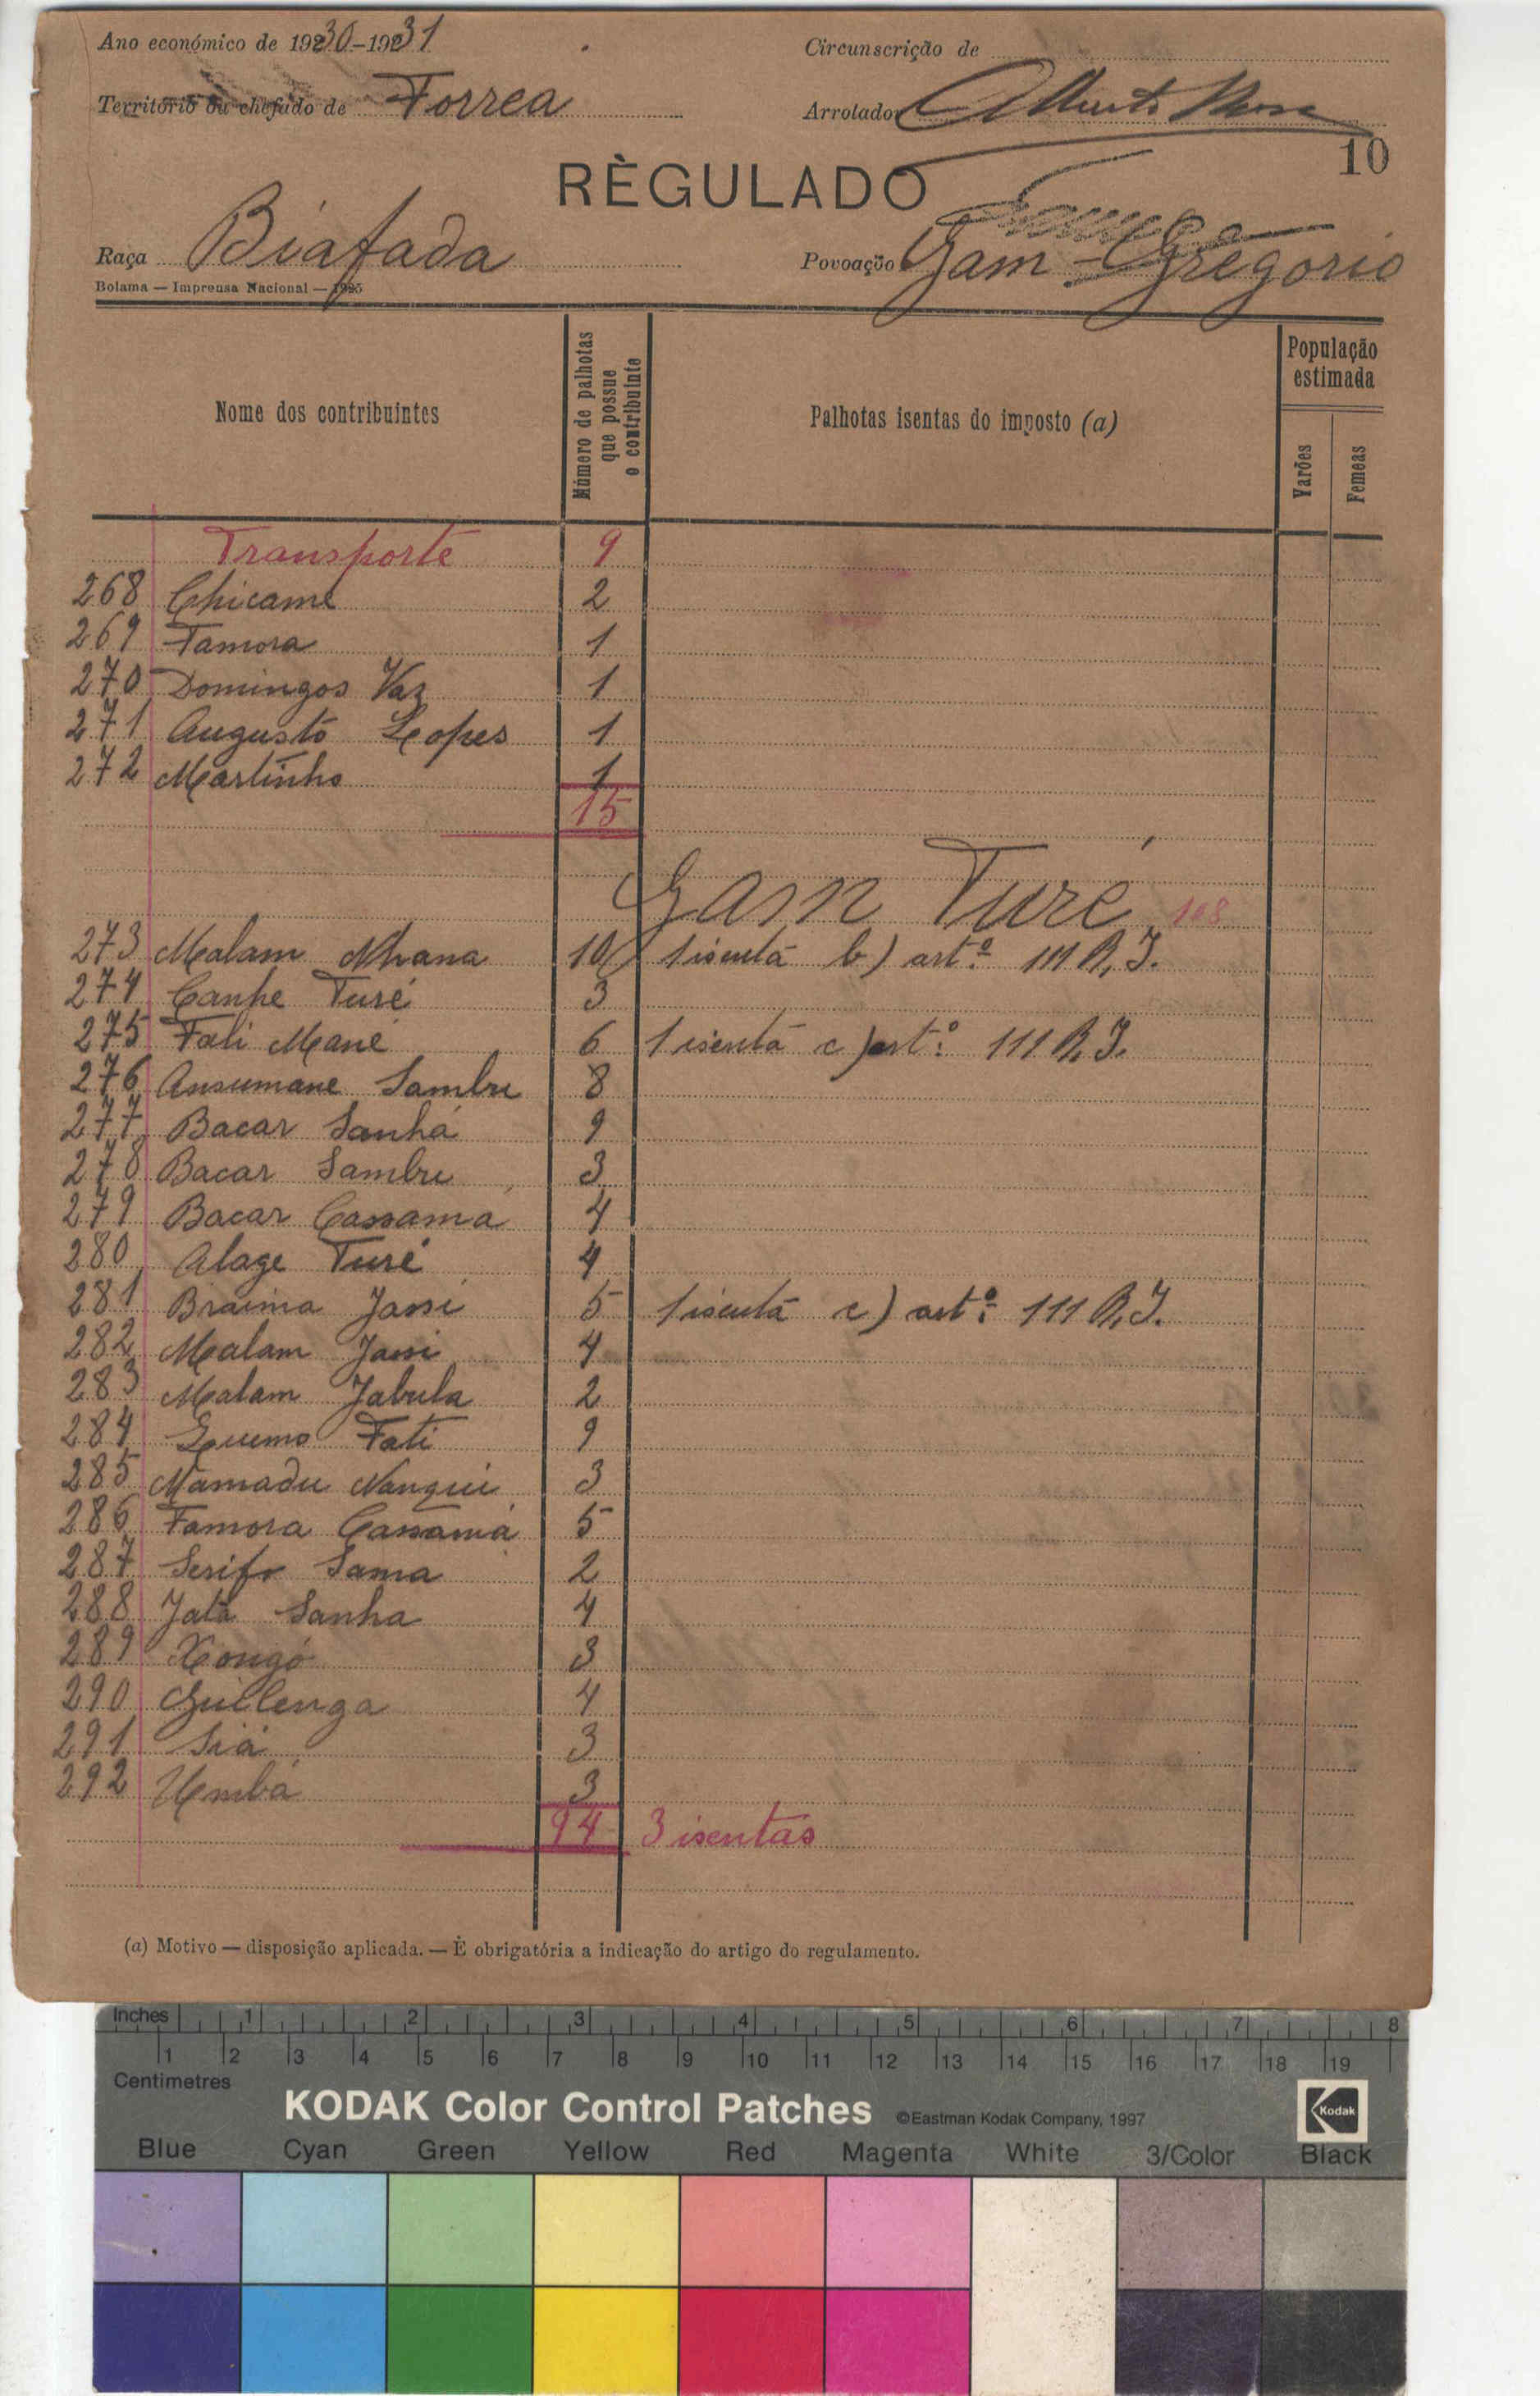 Ano económico de 1930-1931
Circunscrição de
Território ou chefado de Forrea
Arrolador Alberto
10
RÈGULADO
Raça Biafada
Povoação Gam-Gregorio
Bolama — Imprensa Nacional — 1925
Nome dos contribuintes
Número de palhotas que possue o contribuinte
Palhotas isentas do imposto (a)
População estimada
Varões
Femeas
Transporte 9
268 Chicame 2
269 Famora 1
270 Domingos Vaz 1
271 Augusto Lopes 1
272 Martinho 1
15
Gam Turé 108
273 Malam Nhana 10 1 isenta b) artº 111 R.I.
274 Canhe Turé 3
275 Fali Mané 6 1 isenta c) artº 111 R.I.
276 Ansumane Sambu 8
277 Bacar Sanhá 9
278 Bacar Sambu 3
279 Bacar Cassama 4
280 Alage Turé 4
281 Braima Jassi 5 1 isenta c) artº 111 R.I.
282 Malam Jassi 4
283 Malam Jabula 2
284 Quemo Fati 9
285 Mamadu Nanqui 3
286 Famora Cassamá 5
287 Serifo Sama 2
288 Jatá Sanha 4
289 Xongó 3
290 Guilenga 4
291 Siá 3
292 Umbá 3
94 3 isentas
(a) Motivo — disposição aplicada. — É obrigatória a indicação do artigo do regulamento.
Inches 1 2 3 4 5 6 7 8
1 2 3 4 5 6 7 8 9 10 11 12 13 14 15 16 17 18 19
Centimetres
KODAK Color Control Patches ©Eastman Kodak Company, 1997 Kodak
Blue Cyan Green Yellow Red Magenta White 3/Color Black